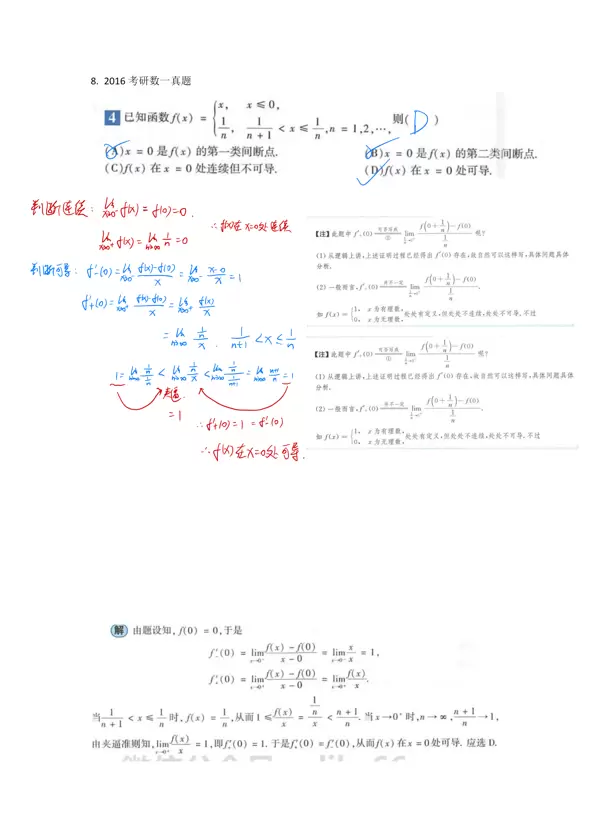 8. 2016 考研数一真题
4 已知函数 f(x) = { x, x ⩽ 0, 1/n, 1/(n+1) < x ⩽ 1/n, n = 1,2,…, 则( D )
(A) x = 0 是 f(x) 的第一类间断点. (B) x = 0 是 f(x) 的第二类间断点.
(C) f(x) 在 x = 0 处连续但不可导. (D) f(x) 在 x = 0 处可导.
判断连续: lim x→0⁻ f(x) = f(0) = 0.
lim x→0⁺ f(x) = lim n→∞ 1/n = 0
∴ f(x)在x=0处连续
判断可导: f'₋(0) = lim x→0⁻ (f(x)-f(0))/x = lim x→0⁻ (x-0)/x = 1
f'₊(0) = lim x→0⁺ (f(x)-f(0))/x = lim x→0⁺ f(x)/x
= lim n→∞ (1/n)/x, 1/(n+1) < x ≤ 1/n
1 = lim n→∞ (1/n)/(1/n) < lim n→∞ (1/n)/x < lim n→∞ (1/n)/(1/(n+1)) = lim n→∞ (n+1)/n = 1
夹逼
= 1
∴ f'₊(0) = 1 = f'₋(0)
∴ f(x)在x=0处可导.
【注】此题中 f'₊(0) 可否等于 ① lim 1/n→0⁺ (f(0+1/n) − f(0))/(1/n) 呢?
(1) 从逻辑上讲,上述证明过程已经得出 f'(0) 存在,故自然可以这样写,具体问题具体
分析.
(2) 一般而言, f'₊(0) 并不一定 lim 1/n→0⁺ (f(0+1/n) − f(0))/(1/n).
如 f(x) = { 1, x 为有理数, 0, x 为无理数, 处处有定义,但处处不连续,处处不可导,不过
【注】此题中 f'₊(0) 可否等于 ① lim 1/n→0⁺ (f(0+1/n) − f(0))/(1/n) 呢?
(1) 从逻辑上讲,上述证明过程已经得出 f'(0) 存在,故自然可以这样写,具体问题具体
分析.
(2) 一般而言, f'₊(0) 并不一定 lim 1/n→0⁺ (f(0+1/n) − f(0))/(1/n).
如 f(x) = { 1, x 为有理数, 0, x 为无理数, 处处有定义,但处处不连续,处处不可导,不过
解 由题设知, f(0) = 0, 于是
f'₋(0) = lim x→0⁻ (f(x) − f(0))/(x − 0) = lim x→0⁻ x/x = 1,
f'₊(0) = lim x→0⁺ (f(x) − f(0))/(x − 0) = lim x→0⁺ f(x)/x.
当 1/(n+1) < x ⩽ 1/n 时, f(x) = 1/n, 从而 1 ⩽ f(x)/x = (1/n)/x < (n+1)/n. 当 x→0⁺ 时, n→∞, (n+1)/n → 1,
由夹逼准则知, lim x→0⁺ f(x)/x = 1, 即 f'₊(0) = 1. 于是 f'₊(0) = f'₋(0), 从而 f(x) 在 x = 0 处可导. 应选 D.